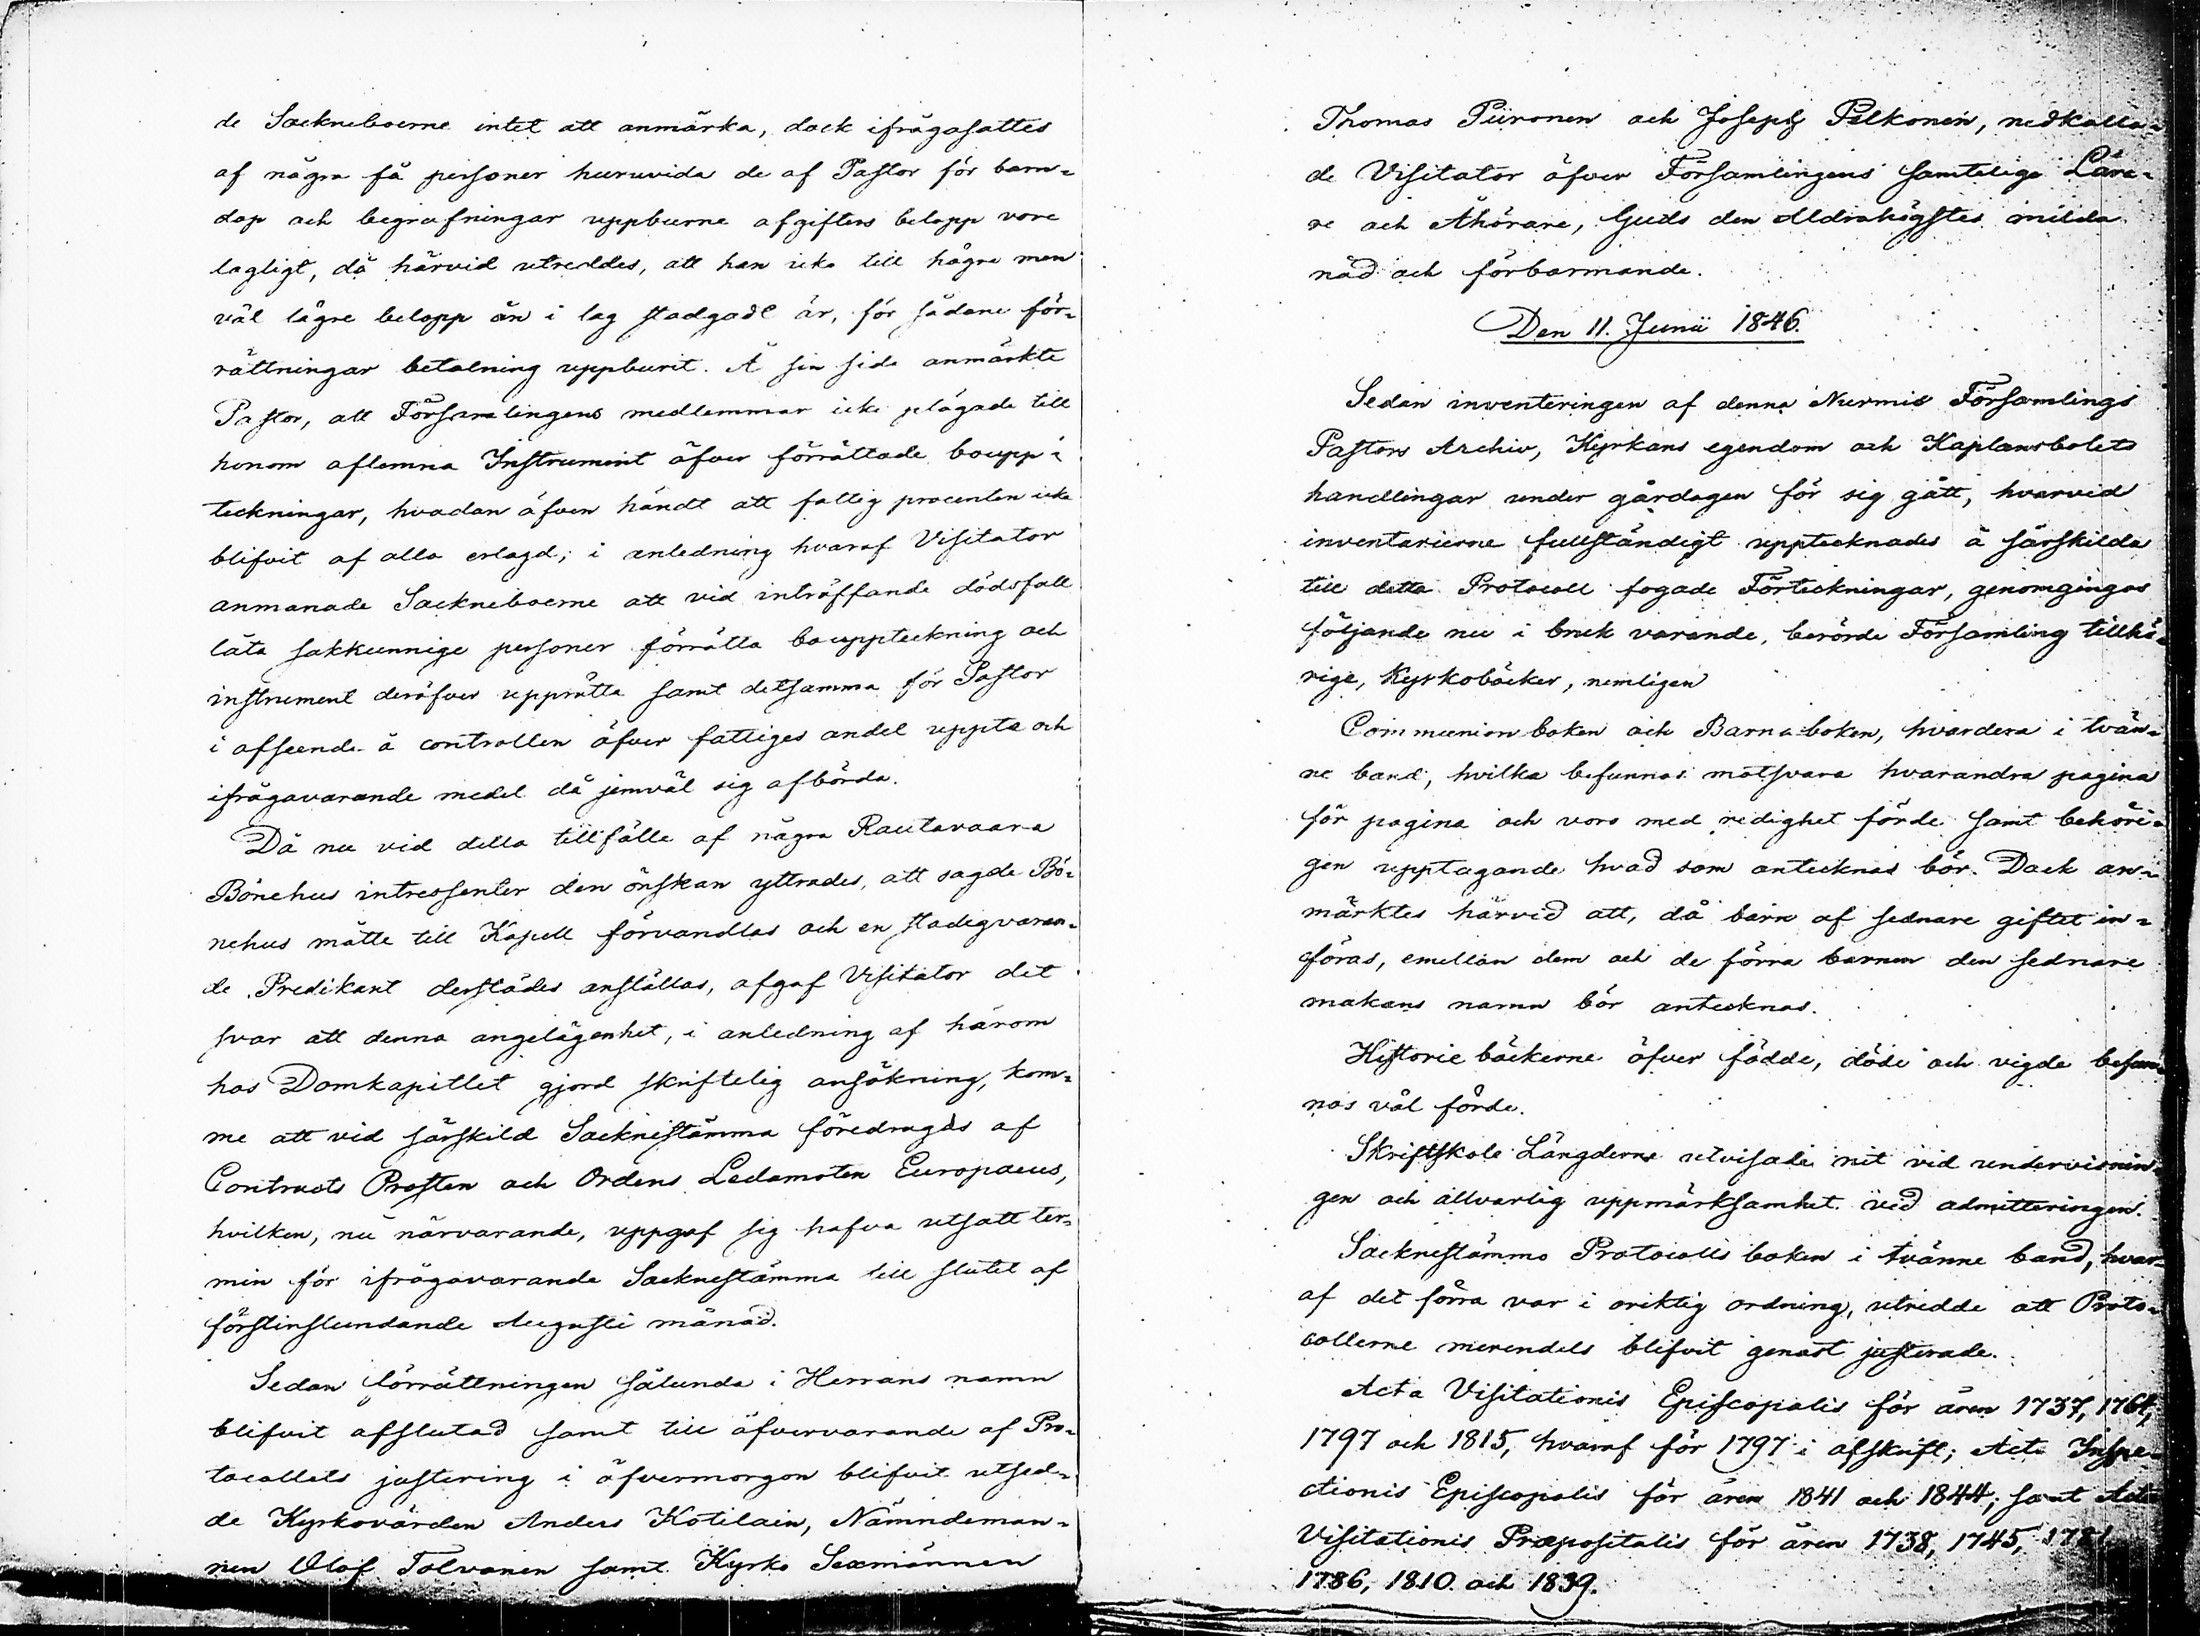 de Sockneboerne intet att anmärka, dock ifrågasattes
af några få personer huruvida de af Pastor för barn-
dop och begrafningar uppburne afgifters belopp vore
lagligt, då härvid utreddes, att han icke till högre men
väl lägre belopp än i lag stadgadt är, för sådane för-
rättningar betalning uppburit. Å sin sida anmärkte
Pastor, att Församlingens medlemmar icke plägade till
honom aflemna Instrument öfver förrättade boupp-
teckningar, hvadan äfven händt att fattig procenten icke
blifvit af alla erlagd; i anledning hvaraf Visitator
anmanade Sockneboerne att vid inträffande dödsfall
låta sakkunnige personer förrätta bouppteckning och
instrument deröfver upprätta samt detsamma för Pastor
i afseende å controllen öfver fattiges andel uppte och
ifrågavarande medel då jemväl sig afbörda.
Då nu vid detta tillfälle af några Rautavaara
Bönehus intressenter den önskan yttrades, att sagde Bö-
nehus måtte till Kapell förvandlas och en stadigvaran-
de Predikant derstädes anställas, afgaf Visitator det
svar att denna angelägenhet, i anledning af härom
hos Domkapitlet gjord skriftelig ansökning, kom-
me att vid särskild Socknestämma föredragas af
Contracts Prosten och Ordens Ledamoten Europaeus,
hvilken, nu närvarande, uppgaf sig hafva utsatt ter-
min för ifrågavarande Socknestämma till slutet af
förstinstundande Augusti månad.
Sedan förrättningen sålunda i Herrans namn
blifvit afslutad samt till öfvervarande af Pro-
tocollets justering i öfvermorgon blifvit utsed-
de Kyrkovärden Anders Kotilain, Nämndeman-
nen Olof Tolvanen samt Kyrko Sexmännen
Thomas Piironen och Joseph Pelkonen, nedkalla-
de Visitator öfver Församlingens samtelige Lära-
re och Åhörare, Guds den Aldrahögstes milda
nåd och förbarmande.
Den 11. Junii 1846.
Sedan inventeringen af denna Nurmis Församlings
Pastors Archiv, Kyrkans egendom och Kaplansbolets
handlingar under gårdagen för sig gått, hvarvid
inventarierne fullständigt upptecknades å särskilda
till detta Protocoll fogade Förteckningar, genomgingos
följande nu i bruk varande, berörde Församling tillhö-
rige, Kyrkoböcker, nemligen
Communion boken och Barnaboken, hvardera i tvän-
ne band, hvilka befunnos motsvara hvarandra pagina
för pagina och voro med redighet förde samt behöri-
gen upptagande hvad som antecknas bör. Dock an-
märktes härvid att, då barn af sednare giftet in-
föras, emellan dem och de förra barnen den sednare
makans namn bör antecknas.
Historie böckerne öfver födde, döde och vigde befun-
nos väl förde.
Skriftskole Längderne utvisade nit vid undervisnin-
gen och allvarlig uppmärksamhet vid admitteringen.
Socknestämmo Protocolls boken i tvänne band, hvar-
af det förra var i oriktig ordning, utredde att Proto-
collerne merendels blifvit genast justerade.
Acta Visitationis Episcopalis för åren 1737, 1764,
1797 och 1815, hvaraf för 1797 i afskrift; Acta Inspe-
ctionis Episcopalis för åren 1841 och 1844; samt Acta
Visitationis Præpositalis för åren 1738, 1745, 1781
1786, 1810 och 1839.